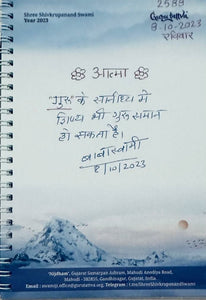 Shree Shivkrupanand Swami
Year 2023
2588
8-10-2023
रविवार
आत्मा
"गुरु" के सानीध्य मे
शिष्य भी गुरु समान
हो सकता है।
बाबास्वामी
8/10/2023
"Nijdham", Gurutattva Samarpan Ashram, Mahudi Anodiya Road,
Mahudi - 382855, Gandhinagar, Gujarat, India.
Email : swamiji.office@gurutattva.org, Telegram : t.me/ShreeShivkrupanandSwami